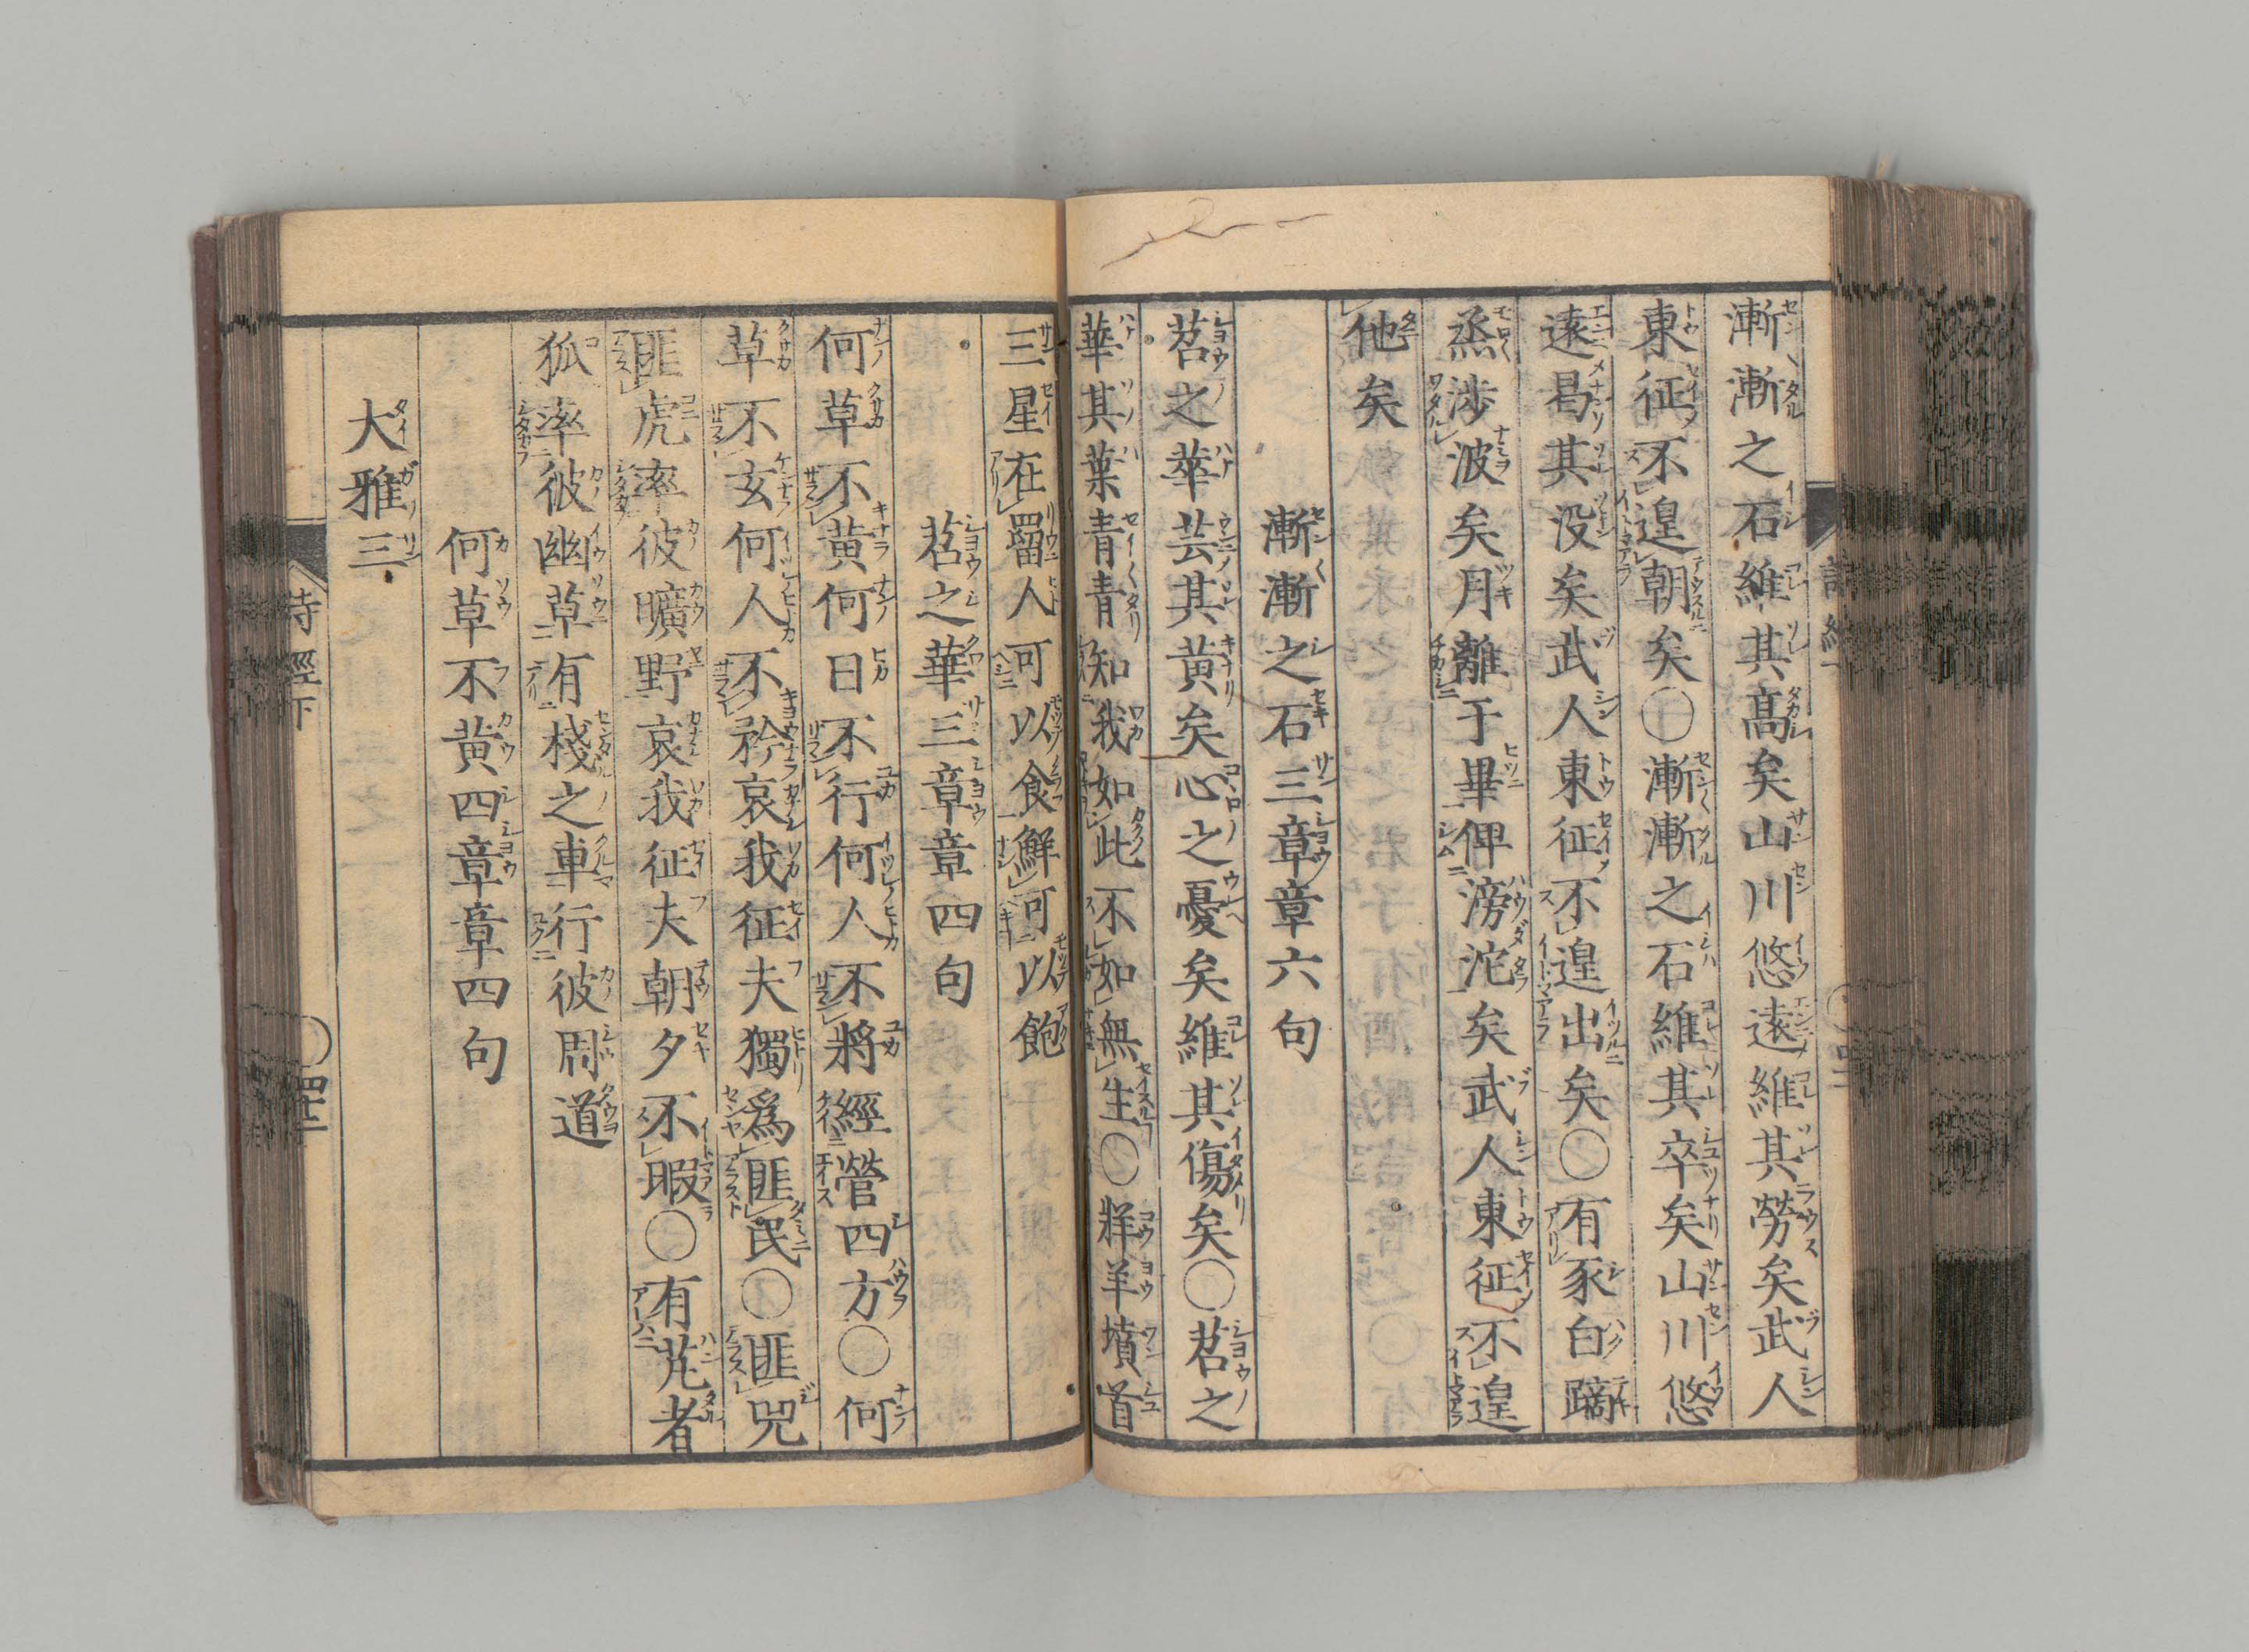 漸漸之石維其髙矣山川悠遠維其勞矣武人
東征不遑朝矣○漸漸之石維其卒矣山川悠
遠曷其没矣武人東征不遑出矣○有豕白蹢
烝涉波矣月離于畢俾滂沱矣武人東征不遑
他矣
漸漸之石三章章六句
苕之華芸其黃矣心之憂矣維其傷矣○苕之
華其葉青青知我如此不如無生○牂羊墳首
三星在罶人可以食鮮可以飽
苕之華三章章四句
何草不黃何日不行何人不將經營四方○何
草不玄何人不矜哀我征夫獨爲匪民○匪兕
匪虎率彼曠野哀我征夫朝夕不暇○有芃者
狐率彼幽草有棧之車行彼周道
何草不黄四章章四句
大雅三
詩經下
四十二